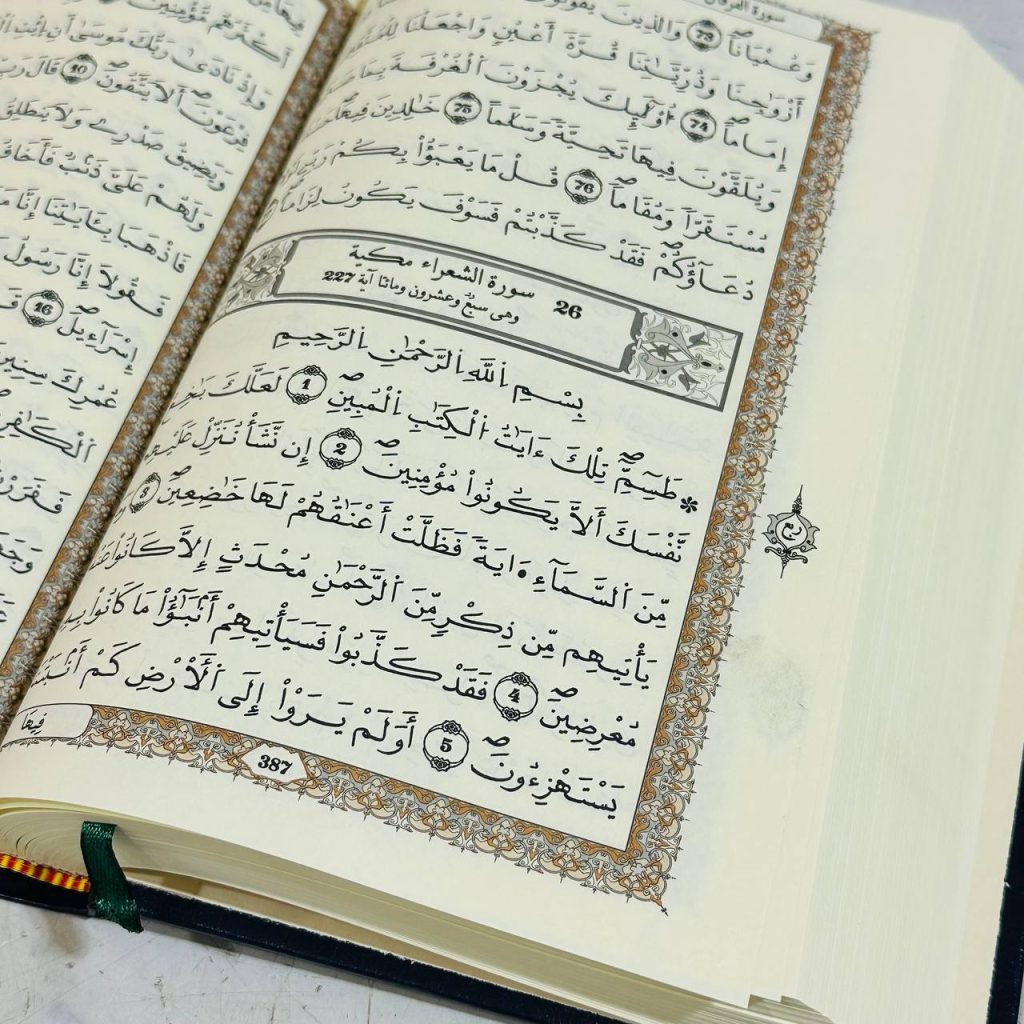 سورة الفرقان
وَعُمْيَاناًۖ 73 وَالذِينَ يَقُولُونَ
أَزْوَٰجِنَا وَذُرِّيَّٰتِنَا قُرَّةَ أَعْيُنٍ وَاجْعَلْنَا
إِمَاماًۖ 74 اُوْلَٰٓئِكَ يُجْزَوْنَ اَلْغُرْفَةَ بِمَا
وَيُلَقَّوْنَ فِيهَا تَحِيَّةً وَسَلَٰماًۖ 75 خَٰلِدِينَ فِيهَا
مُسْتَقَرّاً وَمُقَاماًۖ 76 قُلْ مَا يَعْبَؤُاْ بِكُمْ رَبِّے
دُعَآؤُكُمْ فَقَدْ كَذَّبْتُمْ فَسَوْفَ يَكُونُ لِزَاماًۖ
26 سورة الشعراء مكية
وهى سبعٌ وعشرون ومائتا آية 227
بِسْمِ اِللَّهِ اِلرَّحْمَٰنِ اِلرَّحِيمِ
* طَسِٓمِّۖ تِلْكَ ءَايَٰتُ اُلْكِتَٰبِ اِلْمُبِينِۖ 1 لَعَلَّكَ
نَّفْسَكَ أَلاَّ يَكُونُواْ مُؤْمِنِينَۖ 2 إِن نَّشَأْ نُنَزِّلْ
مِّنَ اَلسَّمَآءِ ءَايَةً فَظَلَّتْ أَعْنَٰقُهُمْ لَهَا خَٰضِعِينَۖ 3
يَأْتِيهِم مِّن ذِكْرٍ مِّنَ اَلرَّحْمَٰنِ مُحْدَثٍ إِلاَّ كَانُواْ
مُعْرِضِينَۖ 4 فَقَدْ كَذَّبُواْ فَسَيَأْتِيهِمْ أَنۢبَٰٓؤُاْ مَا كَانُواْ
يَسْتَهْزِءُونَۖ 5 أَوَلَمْ يَرَوِاْ اِلَى اَلَارْضِ كَمْ
ربع
387
فِيهَا
أَكْثَرُهُم مُّؤْمِنِينَ
وَإِذْ نَادَىٰ رَبُّكَ مُوسَىٰ أَنِ اِيتِ
فِرْعَوْنَ أَلاَ يَتَّقُونَۖ 10 قَالَ رَبِّ
وَيَضِيقُ صَدْرِے وَلاَ يَنطَلِقُ
وَلَهُمْ عَلَيَّ ذَنۢبٌ فَأَخَافُ
فَاذْهَبَا بِـَٔايَٰتِنَا إِنَّا
فَقُولاَ إِنَّا رَسُولُ
إِسْرَآءِيلَۖ 16
عُمُرِكَ سِنِينَ